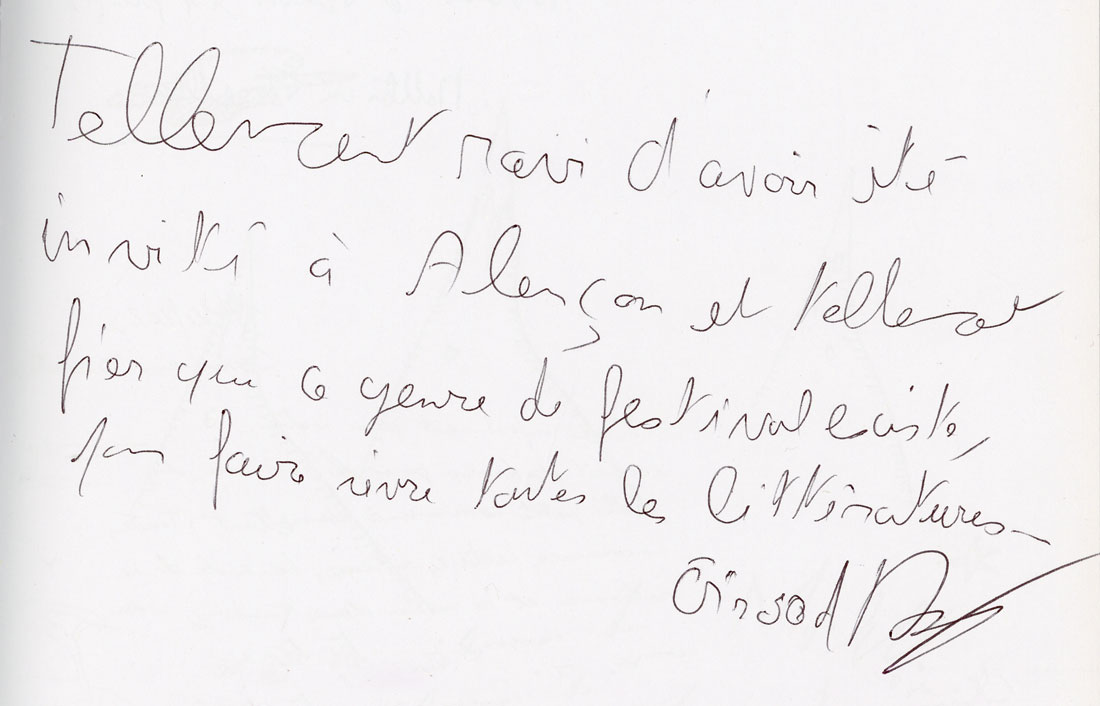 Tellement ravi d'avoir été
invité à Alençon et tellement
fier que ce genre de festival existe,
pour faire vivre toutes les littératures